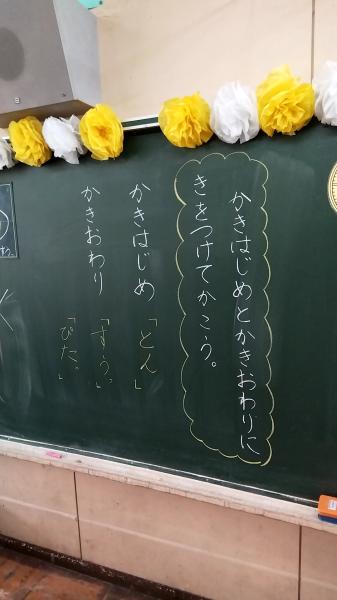 かきはじめとかきおわりに
きをつけてかこう。
かきはじめ 「とん」
かきおわり 「すう。」
「ぴた。」